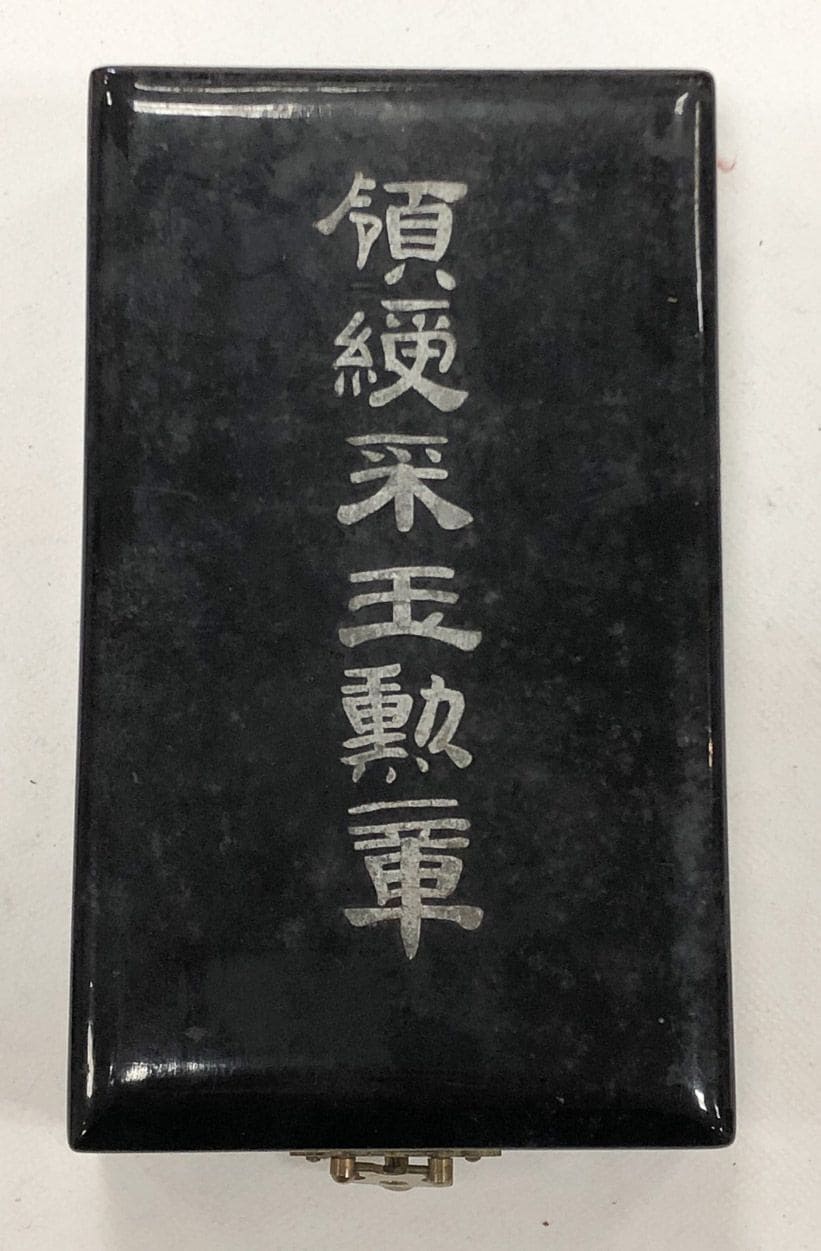 領綬采玉勲章